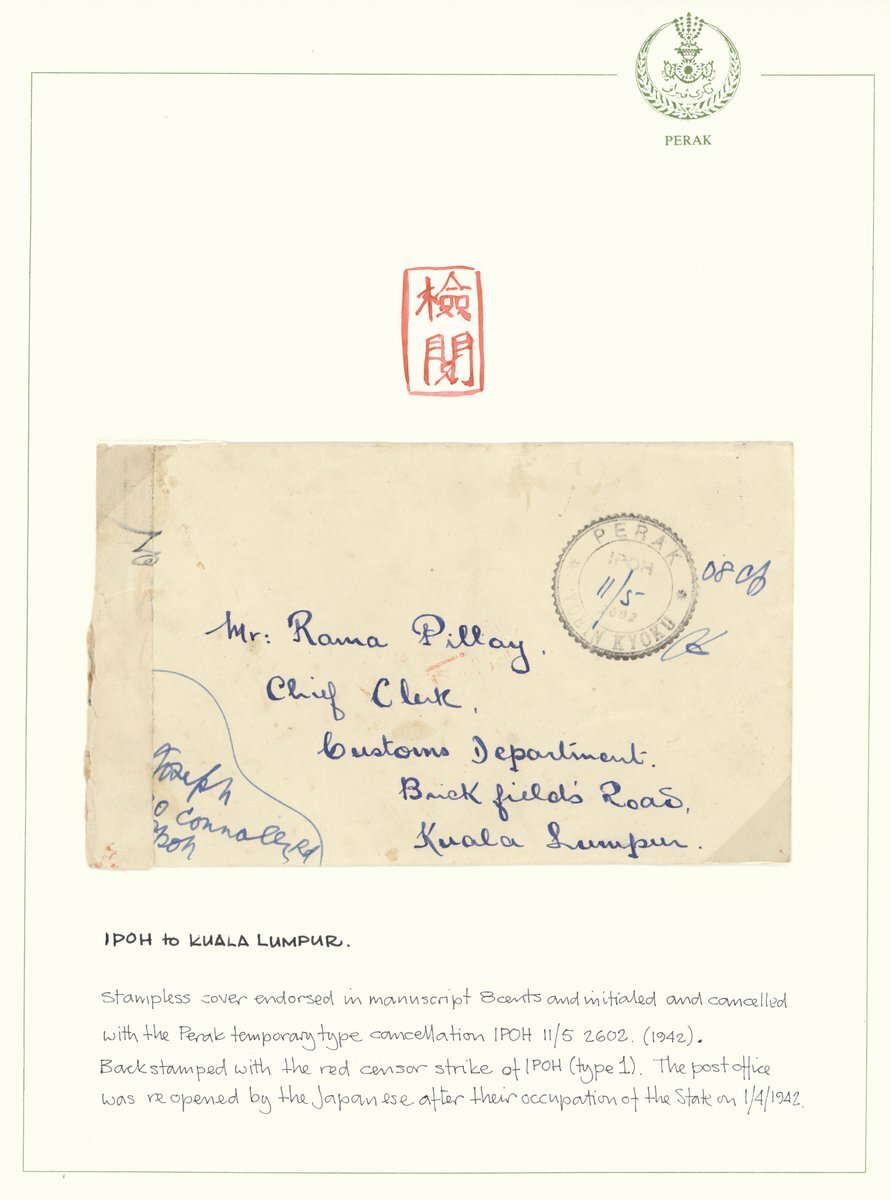 نكري ڤيراق
PERAK
檢
閲
PERAK
IPOH
11/5
2602
YUBIN KYOKU
08
Mr: Rama Pillay,
Chief Clerk,
Customs Department.
Brickfields Road,
Kuala Lumpur.
Joseph
Connolly Rd
Ipoh
IPOH to KUALA LUMPUR.
Stampless cover endorsed in manuscript 8cents and initialed and cancelled
with the Perak temporary type cancellation IPOH 11/5 2602. (1942).
Backstamped with the red censor strike of IPOH (type 1). The post office
was reopened by the Japanese after their occupation of the State on 1/4/1942.